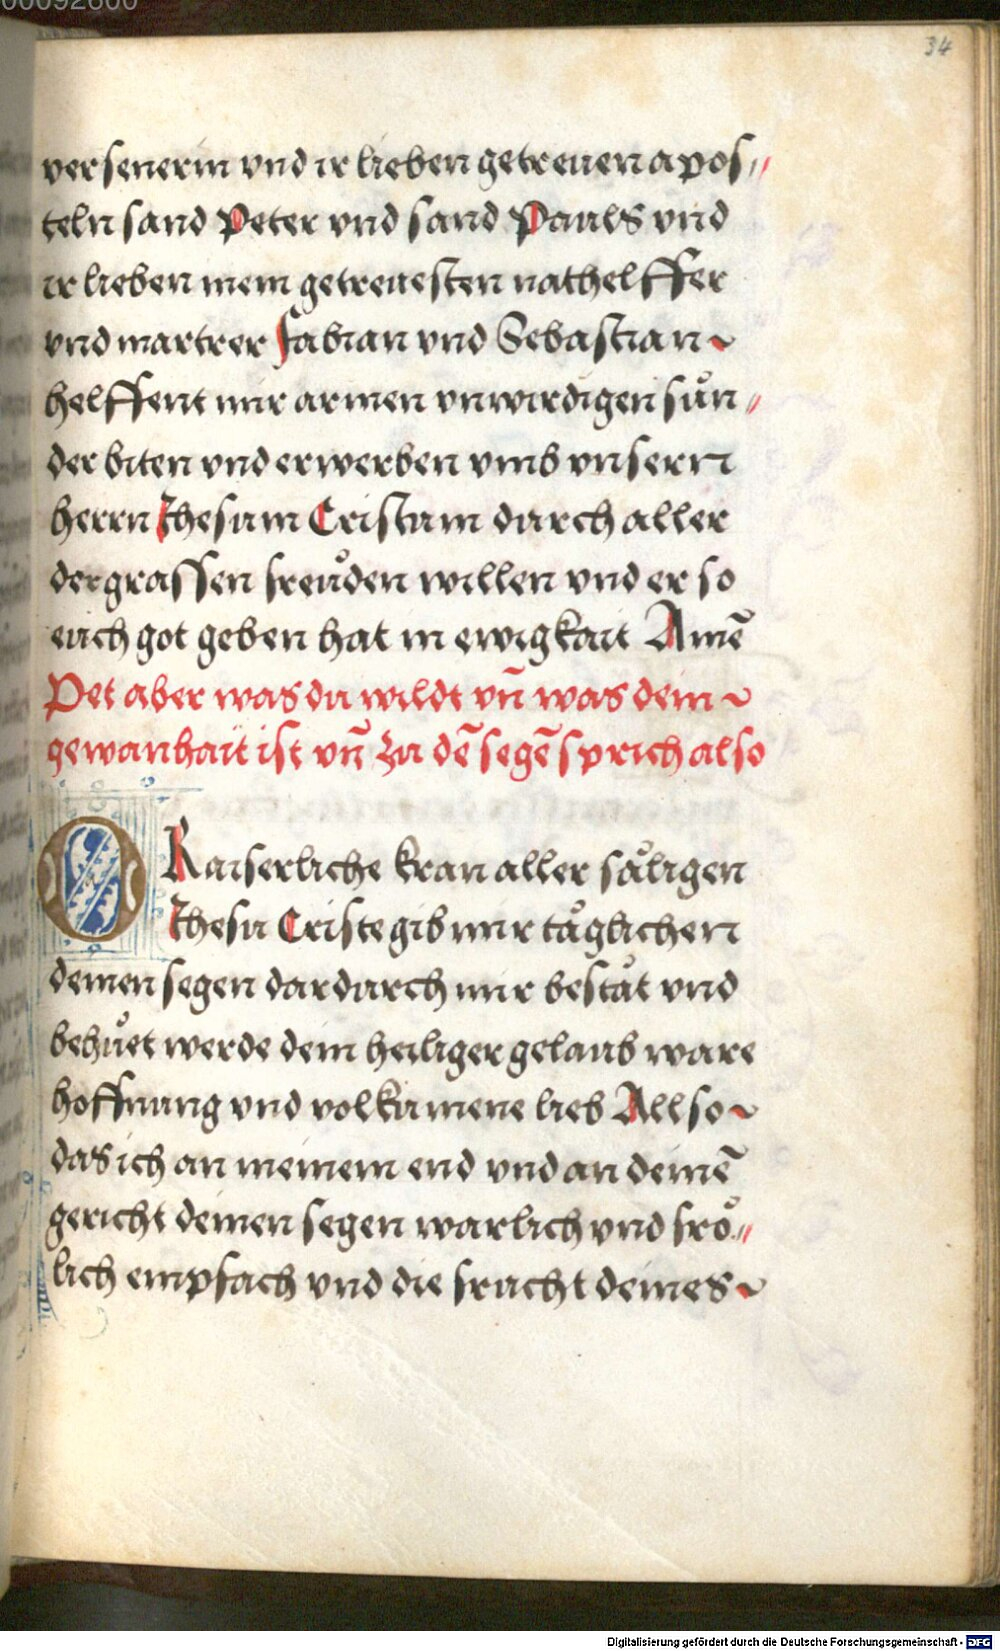 00092600
34
versenerin vnd ir lieben getreuen apos〃
teln sand Peter vnd sand Pauls vnd
ir lieben mein getreuesten nothelffer
vnd martrer fabian vnd Sebastian~
helffent mir armen vnwirdigen sůn〃
der biten vnd erwerben vmb vnsern
herrn Jhesum Cristum durch aller
der grossen freůden willen vnd er so
euch got geben hat in ewigkait Amē
Pet aber was du wildt vn̄ was dein~
gewonhait ist vn̄ zu dē segē sprich also
O Kaiserliche kron aller såligen
Jhesu Criste gib mir tåglichen
deinen segen dardurch mir beståt vnd
behůet werde dein heiliger gelaub ware
hoffnung vnd volkumene lieb Allso~
das ich an meinem end vnd an deinē
gericht deinen segen warlich vnd frő〃
lich empfach vnd die frucht deines~
Digitalisierung gefördert durch die Deutsche Forschungsgemeinschaft - DFG